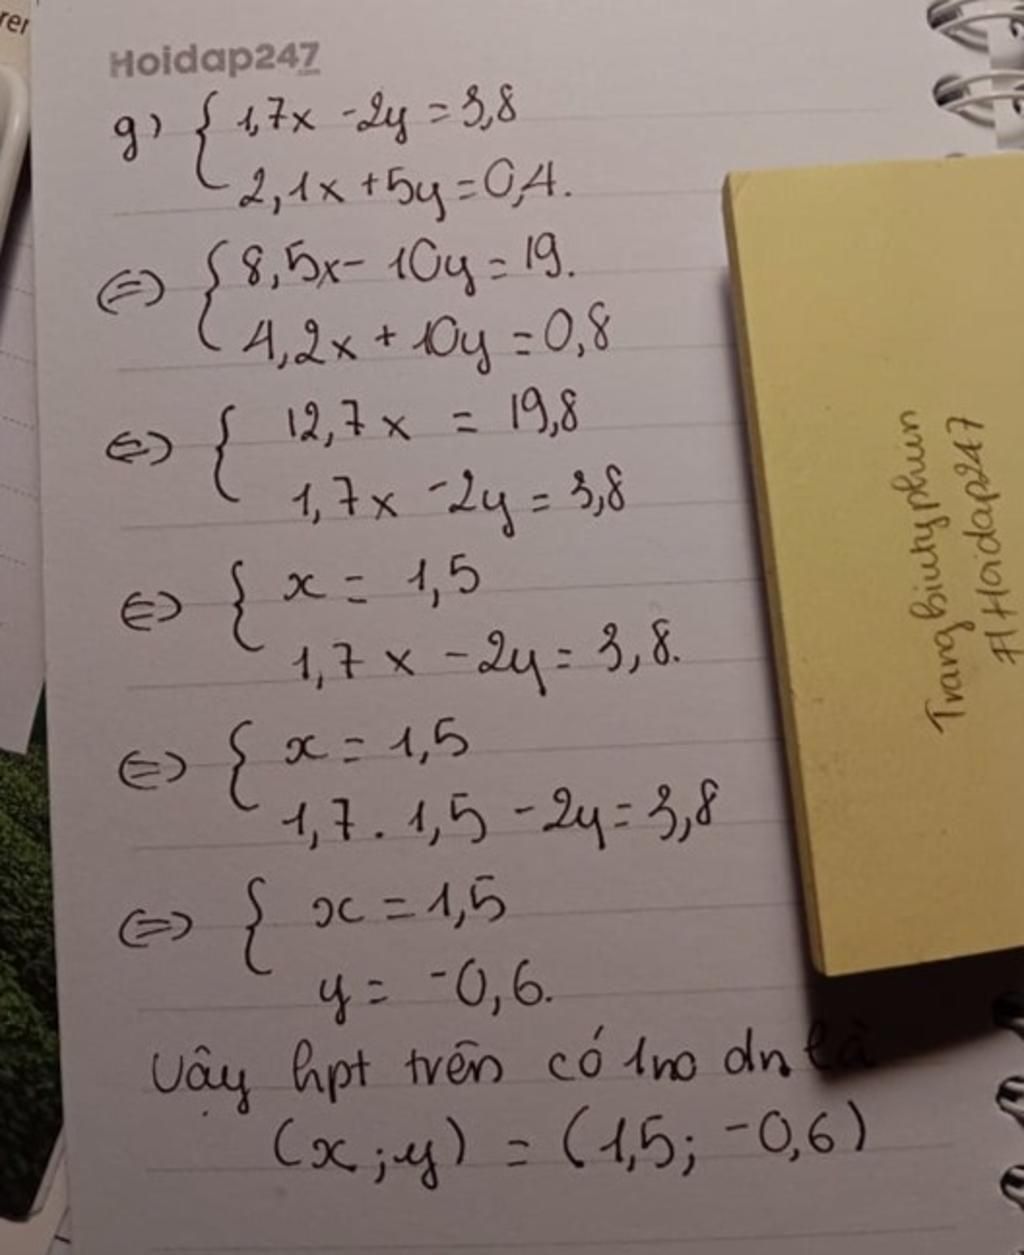 rer
Hoidap247
g) { 1,7x - 2y = 3,8
2,1x + 5y = 0,4.
⇔ { 8,5x - 10y = 19.
4,2x + 10y = 0,8
⇔ { 12,7x = 19,8
1,7x - 2y = 3,8
⇔ { x = 1,5
1,7x - 2y = 3,8.
⇔ { x = 1,5
1,7 . 1,5 - 2y = 3,8
⇔ { x = 1,5
y = -0,6.
Vậy hpt trên có 1 no dn là
(x;y) = (1,5; -0,6)
Trang
Hoidap247